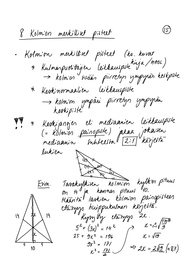 8 Kolmion merkilliset pisteet
Kolmion merkilliset pisteet (ks. kuvat kirja/moni)
* Kulmanpuolittajien leikkauspiste
→ kolmion sisään piirretyn ympyrän keskipiste
* Keskinormaalien leikkauspiste
→ kolmion ympäri piirretyn ympyrän keskipiste
* Keskijanojen eli mediaanien leikkauspiste
(= kolmion painopiste) jakaa jokaisen
mediaanin suhteessa 2:1 kärjestä
lukien
Esim. Tasakylkisen kolmion kyljen pituus
on 14 ja kannan pituus 10.
Määritä kolmion painopisteen
etäisyys huippukulman kärjestä.
Kysytty etäisyys 2x.
5² + (3x)² = 14²
25 + 9x² = 196
9x² = 171
x = √19